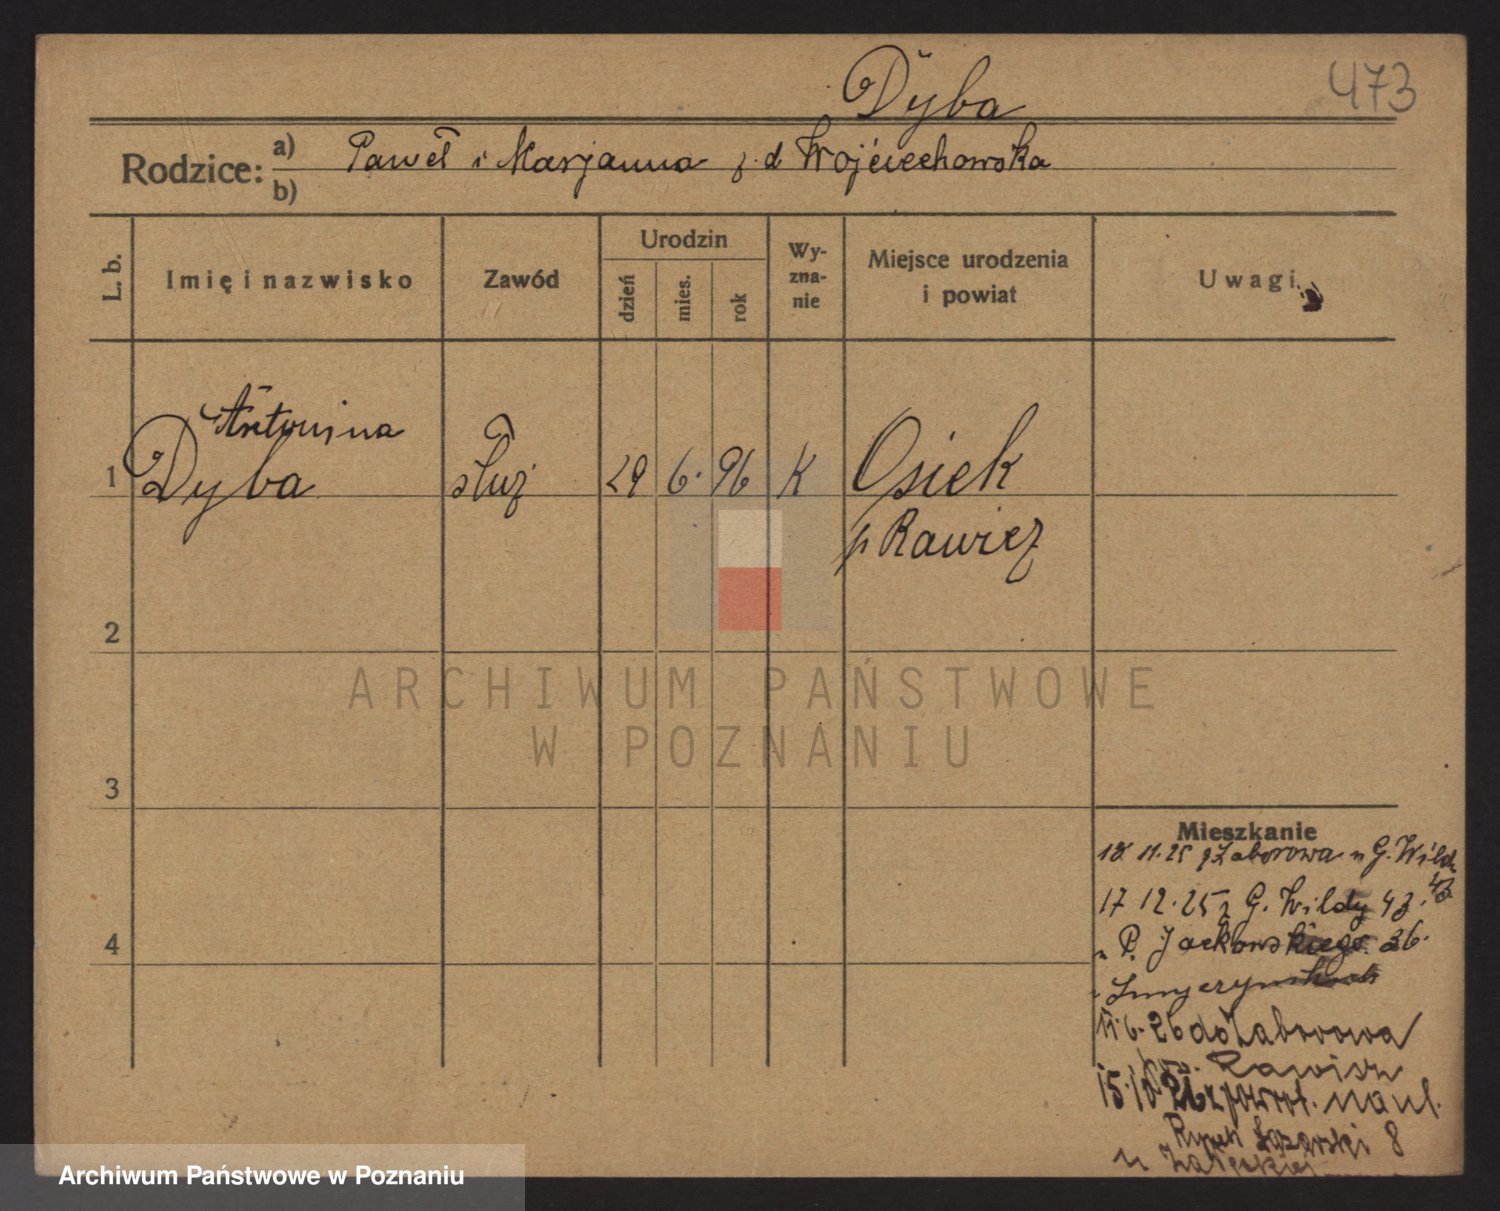 Dyba
473
Rodzice: a) Paweł i Marjanna z d Wojciechowska
b)
L. b.
Imię i nazwisko
Zawód
Urodzin
dzień
mies.
rok
Wy-
zna-
nie
Miejsce urodzenia
i powiat
Uwagi
Antonina
1 Dyba służ 29 6. 96 K Osiek
p Rawicz
2
3
4
ARCHIWUM PAŃSTWOWE
W POZNANIU
Mieszkanie
18 11.25 z Zaborowa n G. Wildy
43.
17 12.25 z G. Wildy 43.
n P. Jackowskiego 36.
6.26 do Zaborowa
Rawicz
15.10 26 z powrot. na ul.
Rynek Łazarski 8
u Zaleskiej
Archiwum Państwowe w Poznaniu